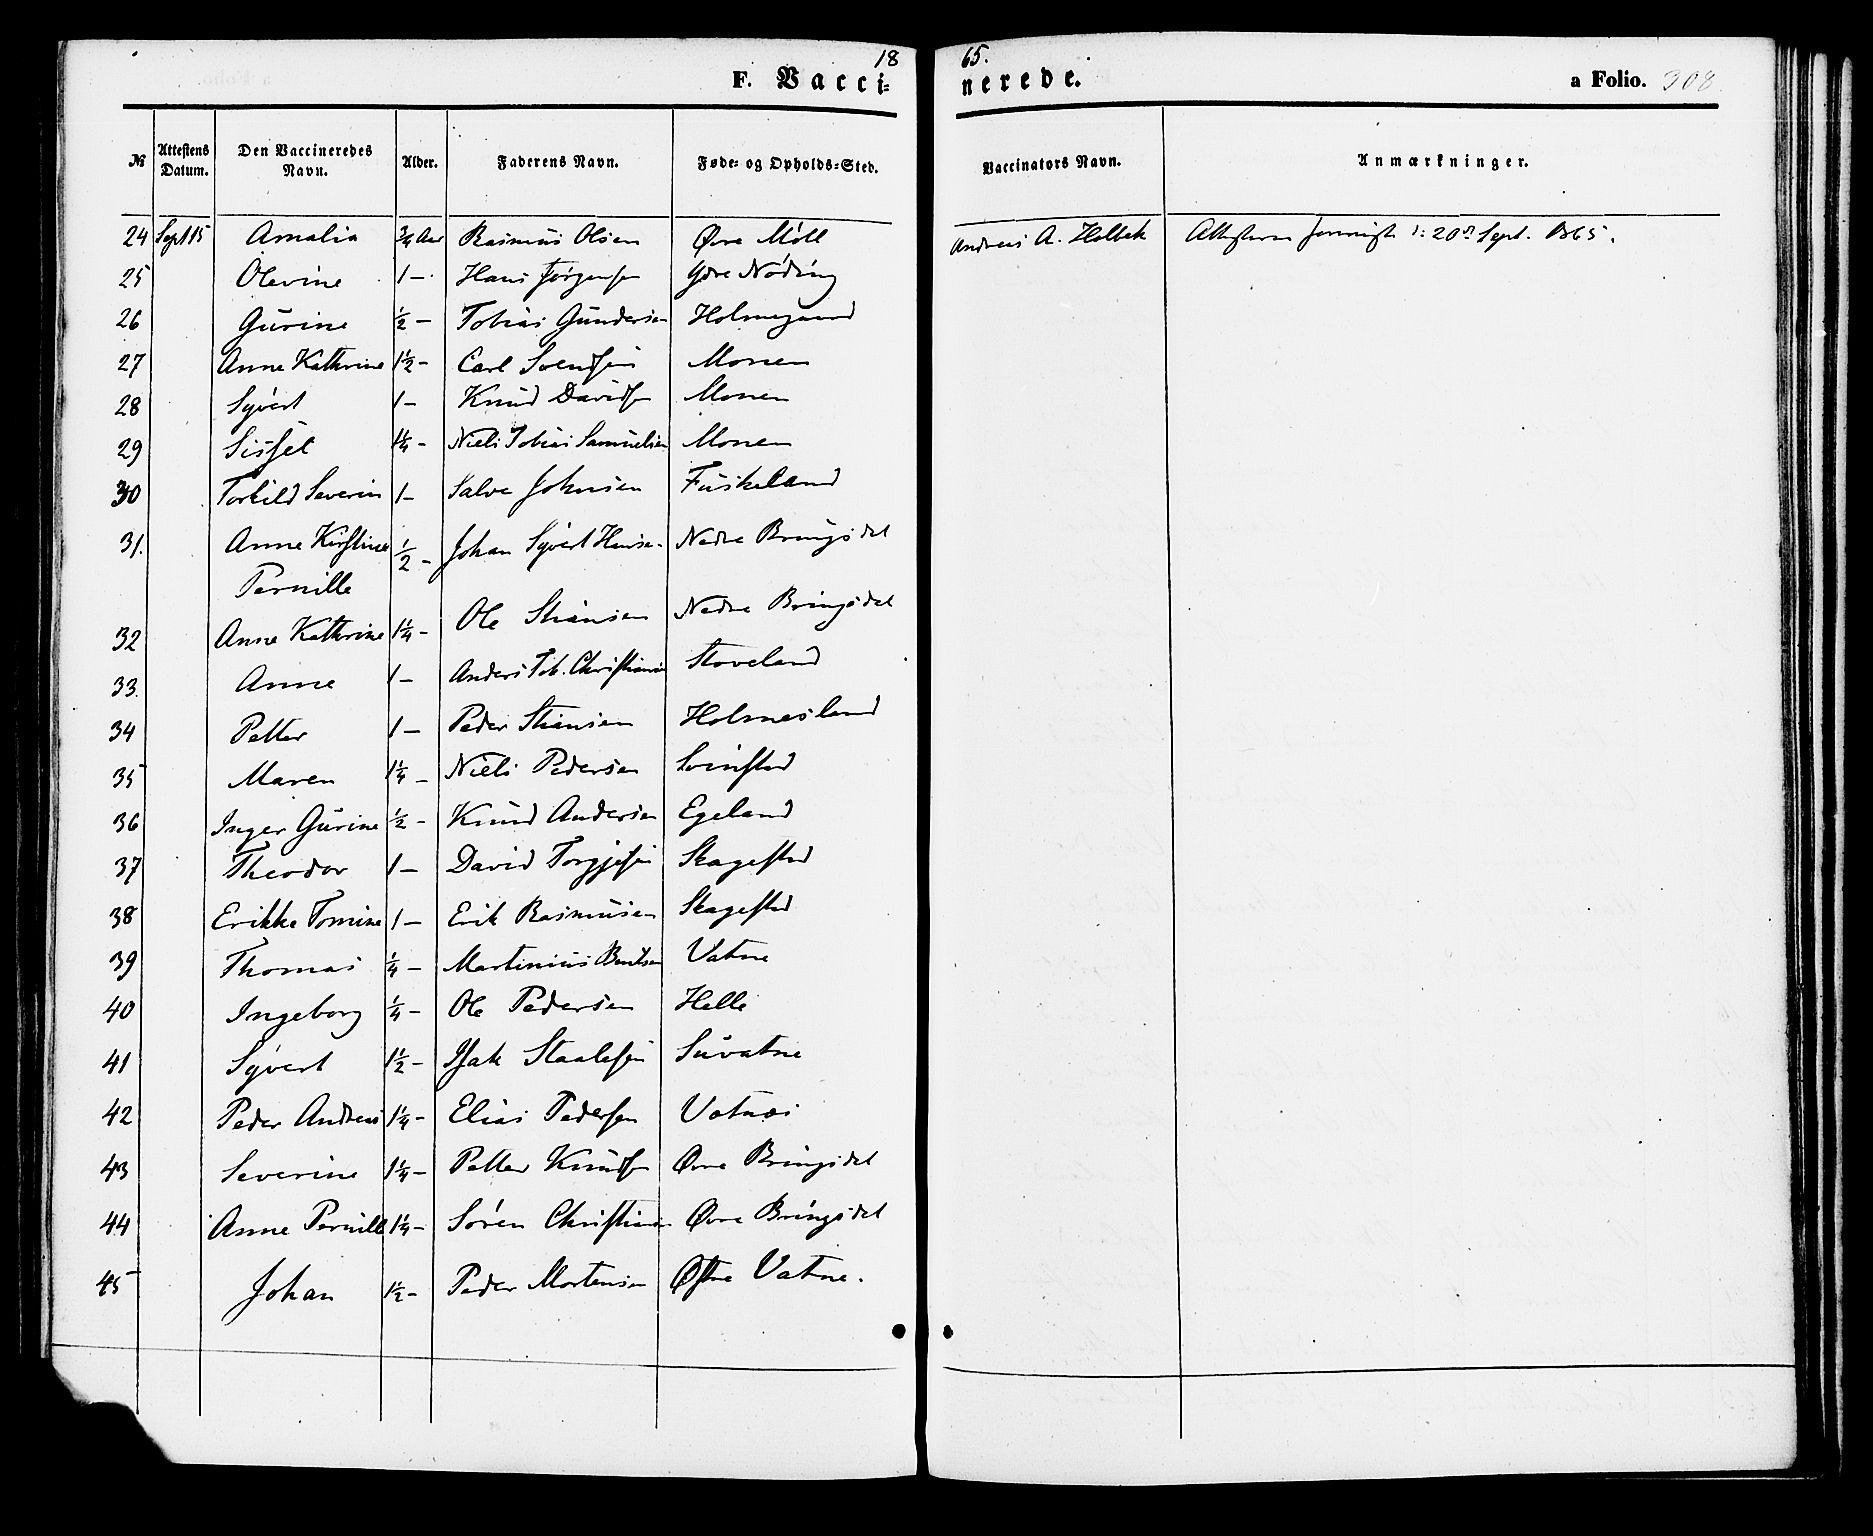 18 65.
F. Vacci- nerede. a Folio. 308
№ Attestens Datum. Den Vaccineredes Navn. Alder. Faderens Navn. Føde- og Opholds-Sted. Vaccinators Navn. Anmærkninger.
24 Sept 15 Amalia 3/4 Aar Rasmus Olsen Øvre Möll Andreas A. Holbek Attesterne 20de Sept. 1865.
25 Olevine 1 - Hans Jørgensen Ydre Nöding
26 Gurine 1/2 - Tobias Gundersen Holmegaard
27 Anne Kathrine 1 1/2 - Carl Svendsen Monen
28 Syvert 1 - Knud Davidsen Monen
29 Sissel 1 1/4 - Niels Tobias Samuelsen Monen
30 Torkild Severin 1 - Salve Johnsen Fuskeland
31. Anne Kirstine 1/2 - Johan Syvert Hansen Nedre Bringsdal
Pernille
32 Anne Kathrine 1 1/4 - Ole Stiansen Nedre Bringsdal
33. Anne 1 - Anders Tob. Christiansen Stoveland
34 Petter 1 - Peder Stiansen Holmesland
35 Maren 1 1/4 - Niels Pedersen Svinstad
36 Inger Gurine 1/2 - Knud Andersen Egeland
37 Theodor 1 - David Torgjesen Skagestad
38 Erikke Tomine 1 - Erik Rasmusen Skagestad
39 Thomas 1/4 - Martinius Bentsen Vatne
40 Ingeborg 1/4 - Ole Pedersen Helle
41 Syvert 1 1/2 - Isak Staalesen Suvatne
42 Peder Andreas 1 1/4 - Elias Pedersen Vatnas
43 Severine 1 1/4 - Petter Knudsen Øvre Bringsdal
44 Anne Pernille 1 1/4 - Sören Christiansen Øvre Bringsdal
45 Johan 1 1/2 - Peder Mortensen Østre Vatne.